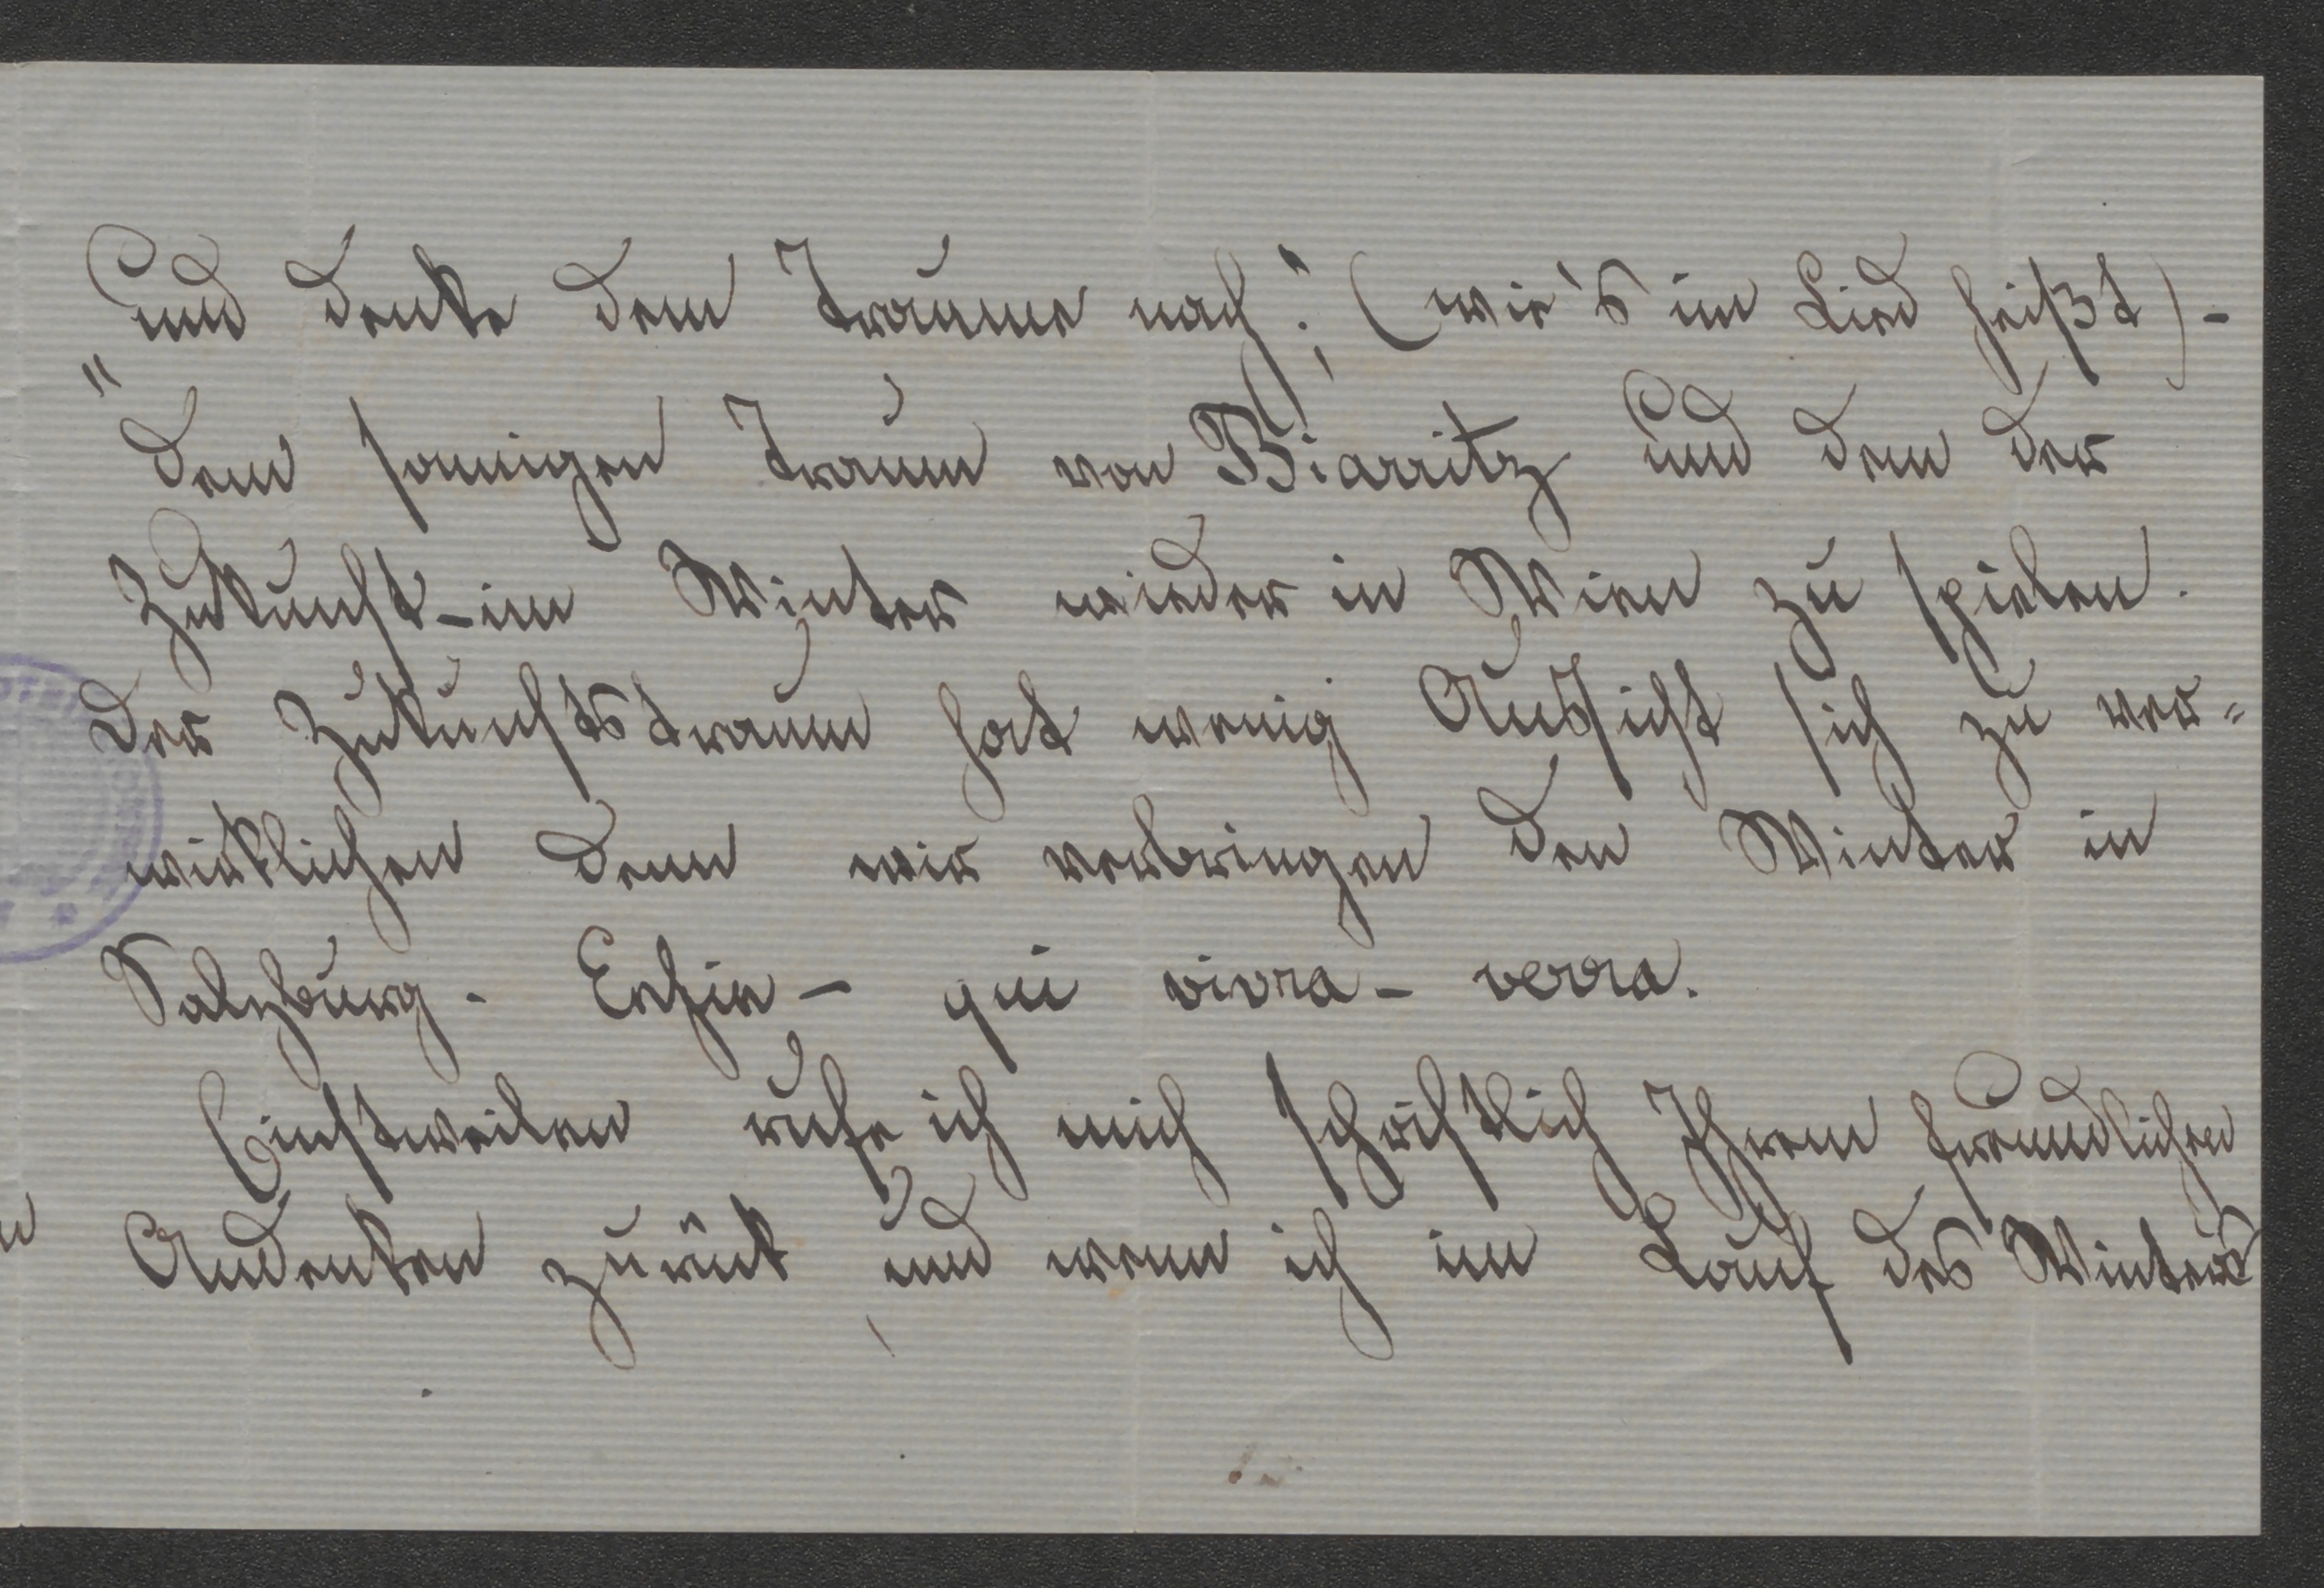 „und denke dem Traume nach!“ (wie's im Lied heißt) -
dem sonnigen Traum von Biarritz und dem der
Zukunft - im Winter wieder in Wien zu spielen.
Der Zukunftstraum hat wenig Aussicht sich zu ver=
wirklichen denn wir verbringen den Winter in
Salzburg. - qui vivra - verra.
Einstweilen rufe ich mich schriftlich Ihrem freundlichen
Andenken zurück und wenn ich im Lauf des Winters